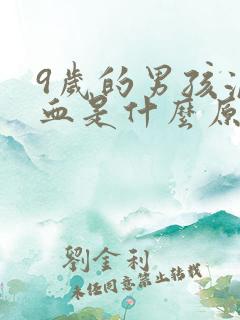 9歲的男孩流
血是什麼原
劉金利
未经同意禁止转载